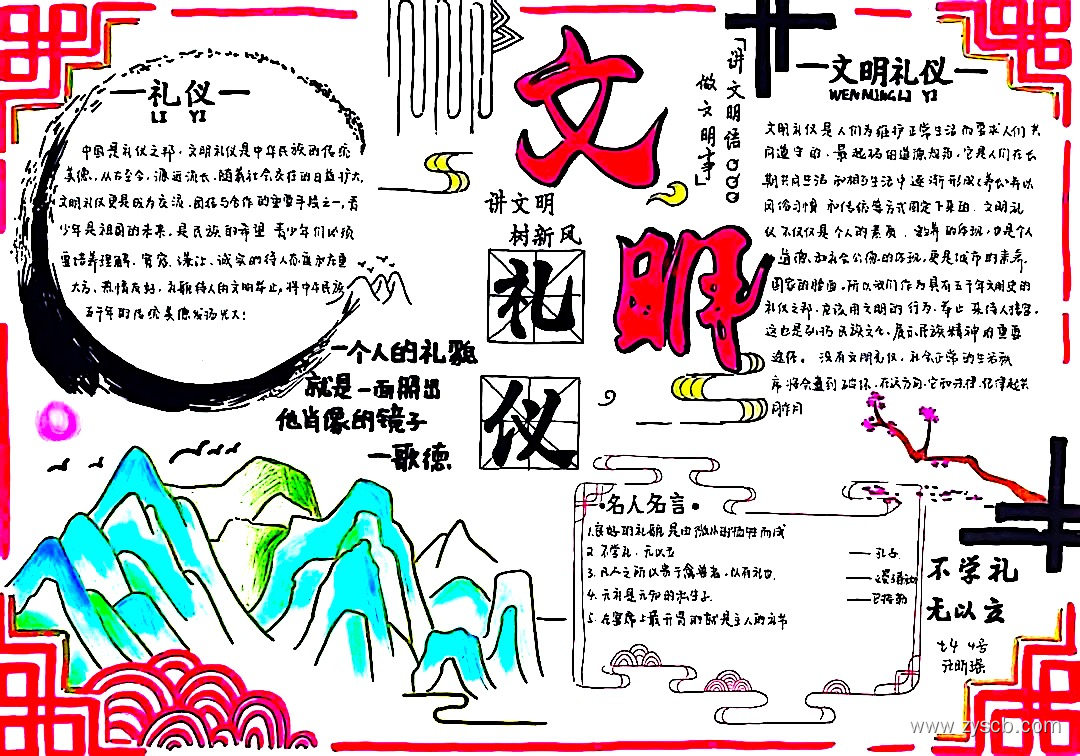 礼仪
LI YI
中国是礼仪之邦，文明礼仪是中华民族的传统
美德，从古至今，源远流长，随着社会交往的日益扩大，
文明礼仪更是成为交流、团结与合作的重要手段之一，青
少年是祖国的未来，是民族的希望 青少年们必须
要培养理解、宽容、谦让、诚实的待人
大方、热情友好，礼貌待人的文明举止，将中华民族
五千年的传统美德发扬光大！
文
明
讲文明
树新风
礼
仪
「讲文明语
做文明事」
一个人的礼貌
就是一面照出
他肖像的镜子
—歌德
文明礼仪
WEN MING LI YI
文明礼仪是人们为维护正常生活而要求人们共
同遵守的，最起码的道德规范，它是人们在长
期共同生活和相互生活中逐渐形成
风俗习惯和传统等方式固定下来的．文明礼
仪不仅仅是个人的素质、教养的体现，也是个人
道德和社会公德的体现，更是城市的素养，
国家的脸面，所以我们作为具有五千年文明史的
礼仪之邦，应该用文明的行为、举止 来待人接客，
这也是弘扬民族文化，展示民族精神的重要
途径。没有文明礼仪，社会正常的生活秩
序将会遭到破坏，在这方面，它和法律、纪律起共
同作用
名人名言
1.良好的礼貌是由微小的牺牲而成
2 不学礼，无以立 —孔子
3.凡人之所以贵于禽兽者，以有礼也．
4.无礼是无知的私生子
5.在宴席上最开胃的就是主人的礼节
不学礼
无以立
七4 4号
www.zyscb.com